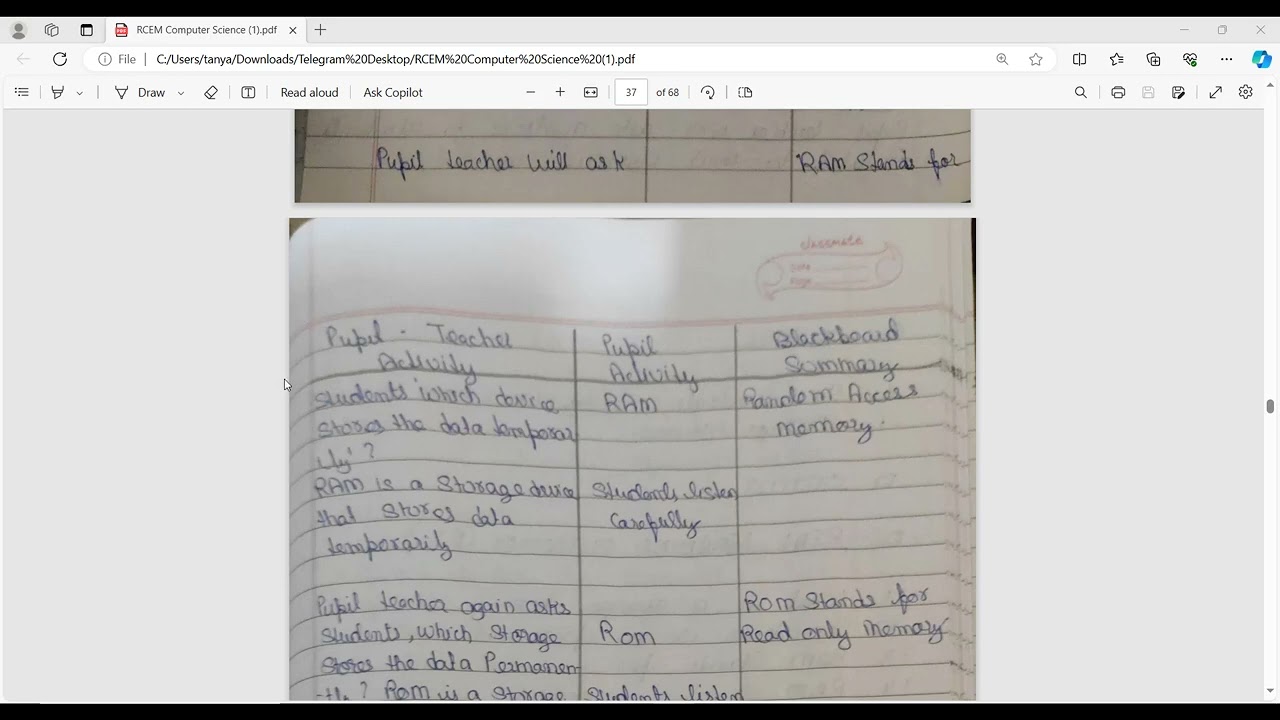 RCEM Computer Science (1).pdf
File C:/Users/tanya/Downloads/Telegram%20Desktop/RCEM%20Computer%20Science%20(1).pdf
Draw Read aloud Ask Copilot 37 of 68
Pupil teacher will ask RAM Stands for
classmate
Date
Page
Pupil - Teacher Pupil Blackboard
Activity Activity Summary
Students 'which device RAM Random Access
Stores the data temporar memory.
ily'?
RAM is a Storage device Students listen
that Stores data Carefully
temporarily
Pupil teacher again asks ROM Stands for
Students, which Storage Rom Read only Memory
Stores the data Permanen
-tly? ROM is a Storage Students listen